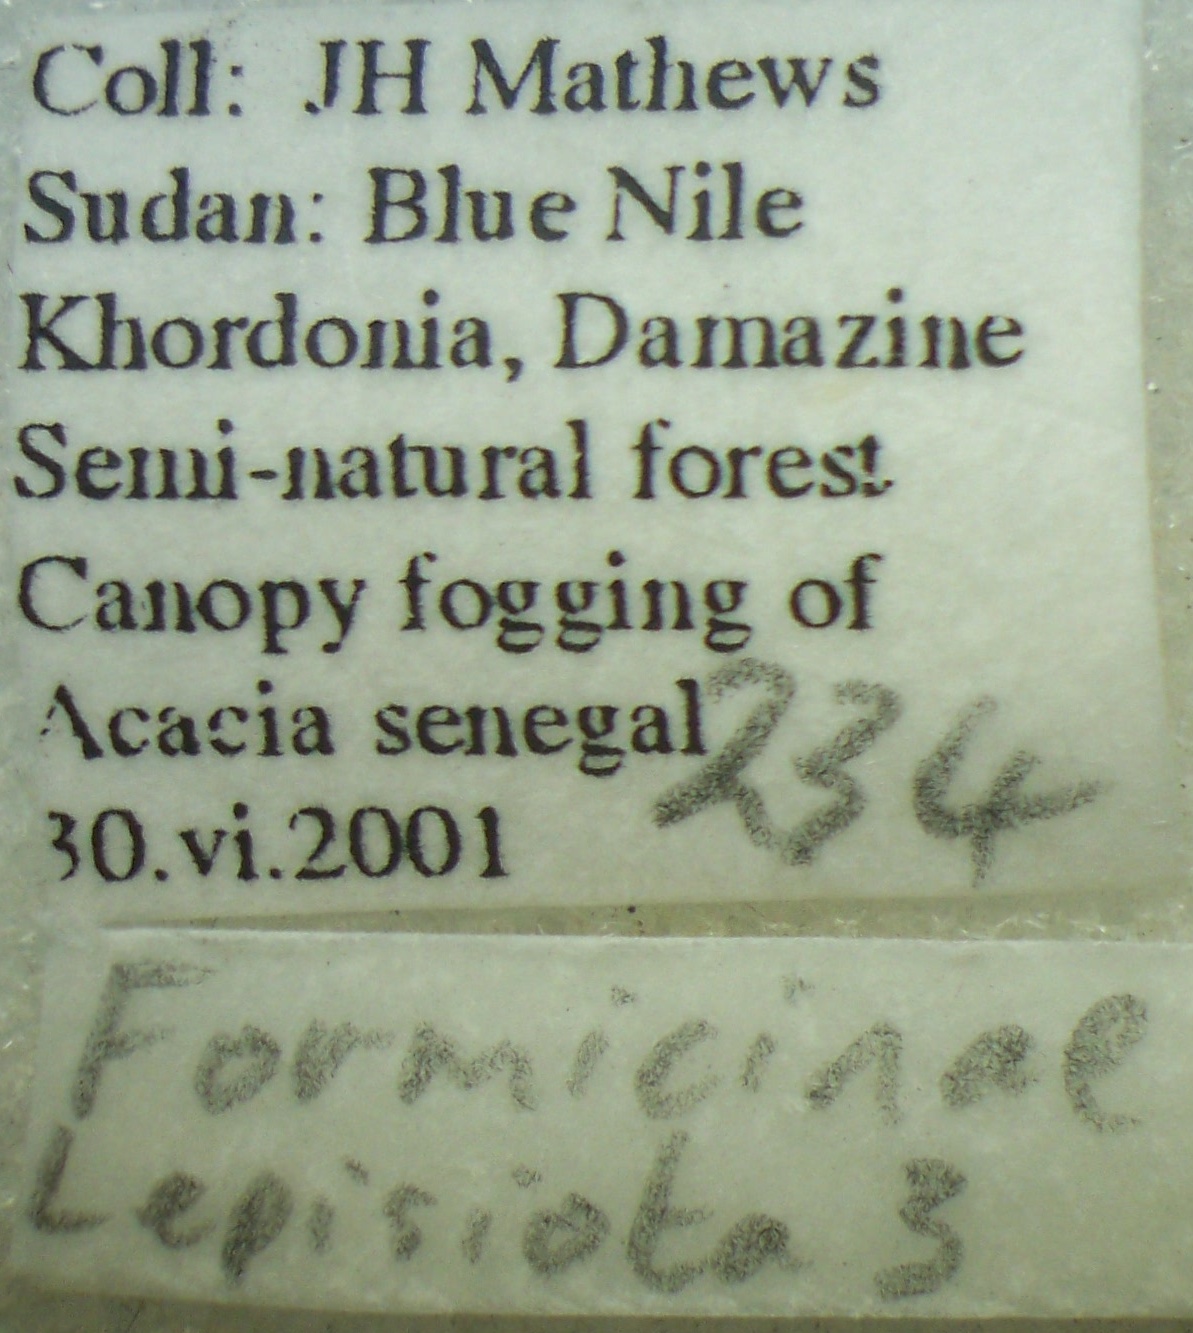 Coll: JH Mathews
Sudan: Blue Nile
Khordonia, Damazine
Semi-natural forest
Canopy fogging of
Acacia senegal 234
30.vi.2001
Formicinae
Lepisiota 3